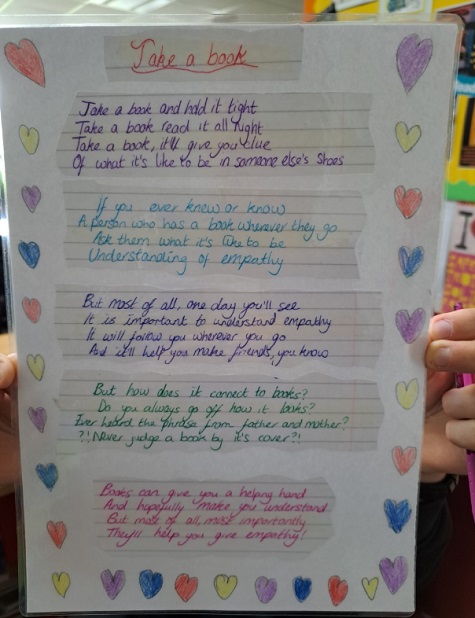 Take a book
Take a book and hold it tight
Take a book read it all night
Take a book, it'll give you clue
Of what it's like to be in someone else's shoes
If you ever knew or know
A person who has a book wherever they go
Ask them what it's like to be
Understanding of empathy
But most of all, one day you'll see
It is important to understand empathy
It will follow you wherever you go
And it'll help you make friends, you know
But how does it connect to books?
Do you always go off how it looks?
Ever heard the phrase from father and mother?
?! Never judge a book by it's cover?!
Books can give you a helping hand
And hopefully make you understand
But most of all, most importantly
They'll help you give empathy!